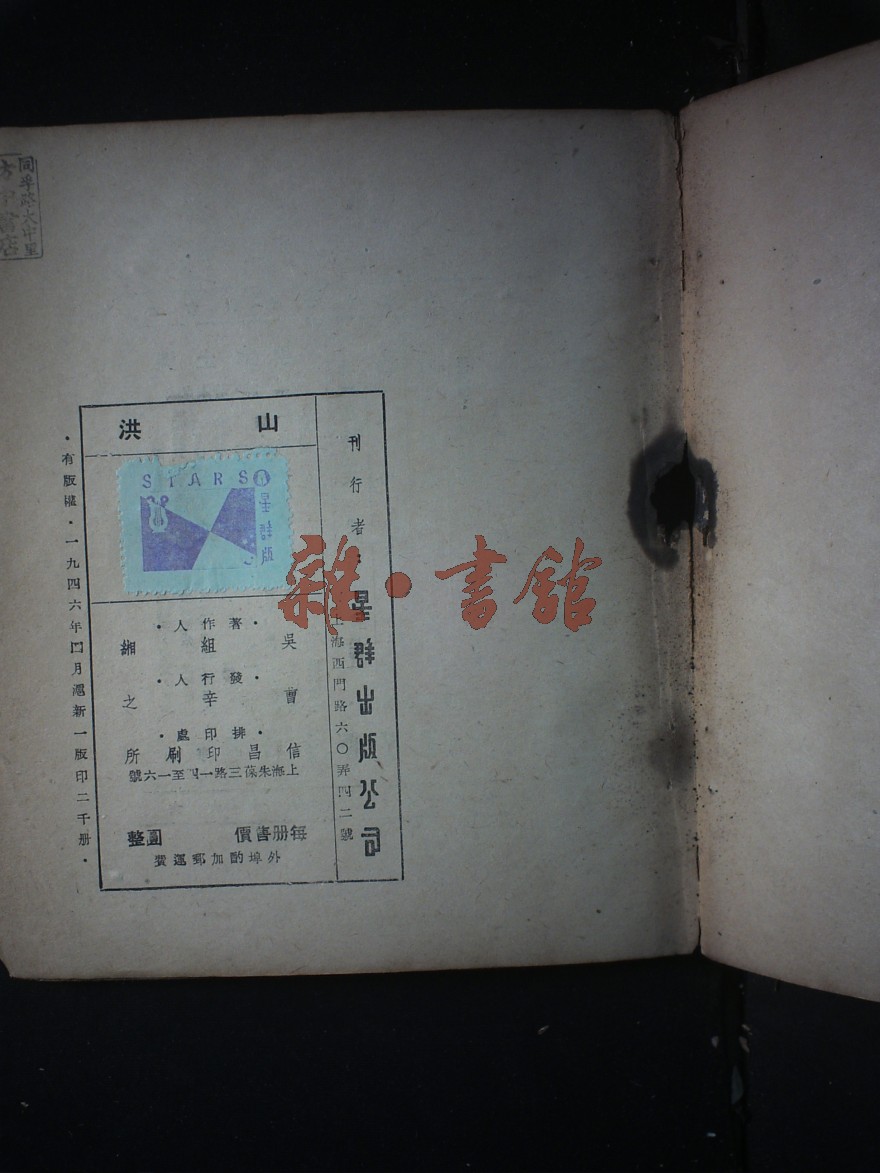 同孚路大中里
書店
山洪
刊行者:星群出版公司
上海西門路六〇弄四二號
STARS
星群版
•著作人•
吳組緗
•發行人•
曹辛之
•排印處•
信昌印刷所
上海朱葆三路一四至一六號
每册書價 圓整
外埠酌加郵運費
•有版權•一九四六年四月滬新一版印二千册•
雜•書館